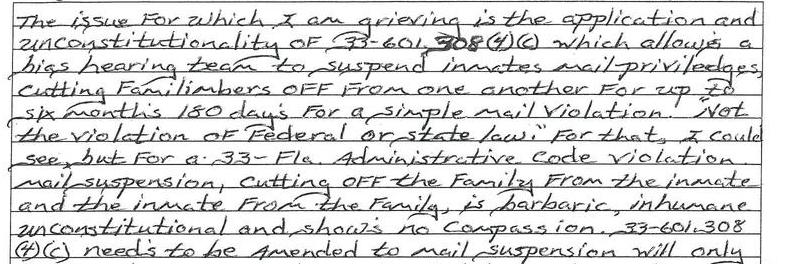 The issue For which I am grieving is the application and
unconstitutionality OF 33-601.308(4)(c) which allows a
bias hearing team to suspend inmates mail priviledges,
cutting Familimbers OFF From one another For up to
six month's 180 days For a simple mail violation. "Not
the violation OF Federal or state law." For that, I could
see, but For a 33-Fla. Administrative Code violation
mail suspension, cutting OFF the Family From the inmate
and the inmate From the Family, is barbaric, inhumane
unconstitutional and show's no compassion. 33-601.308
(4)(c) need's to be Amended to mail suspension will only